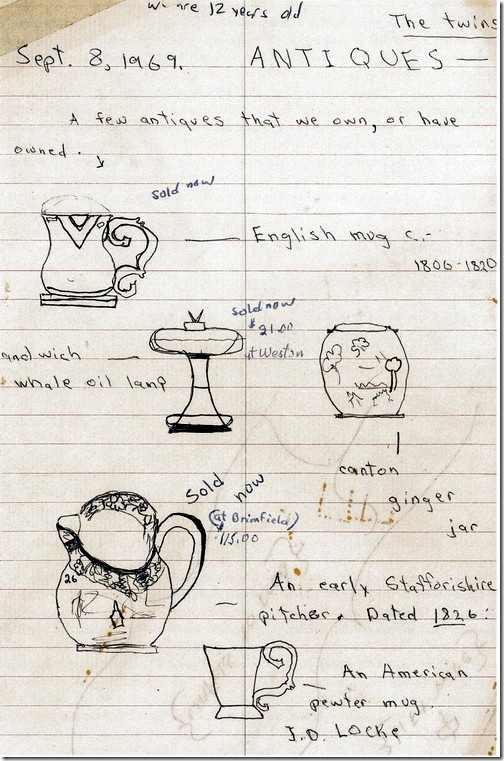 We are 12 years old
The twins
Sept. 8, 1969. ANTIQUES —
A few antiques that we own, or have
owned.
sold now
English mug c.-
1800-1820
sold now
$21.00
at Weston
andwich
whale oil lamp
canton
ginger
jar
Sold now
(at Brimfield)
$115.00
26
An early Stafforishire
pitcher. Dated 1826:
An American
pewter mug.
J.D. Locke